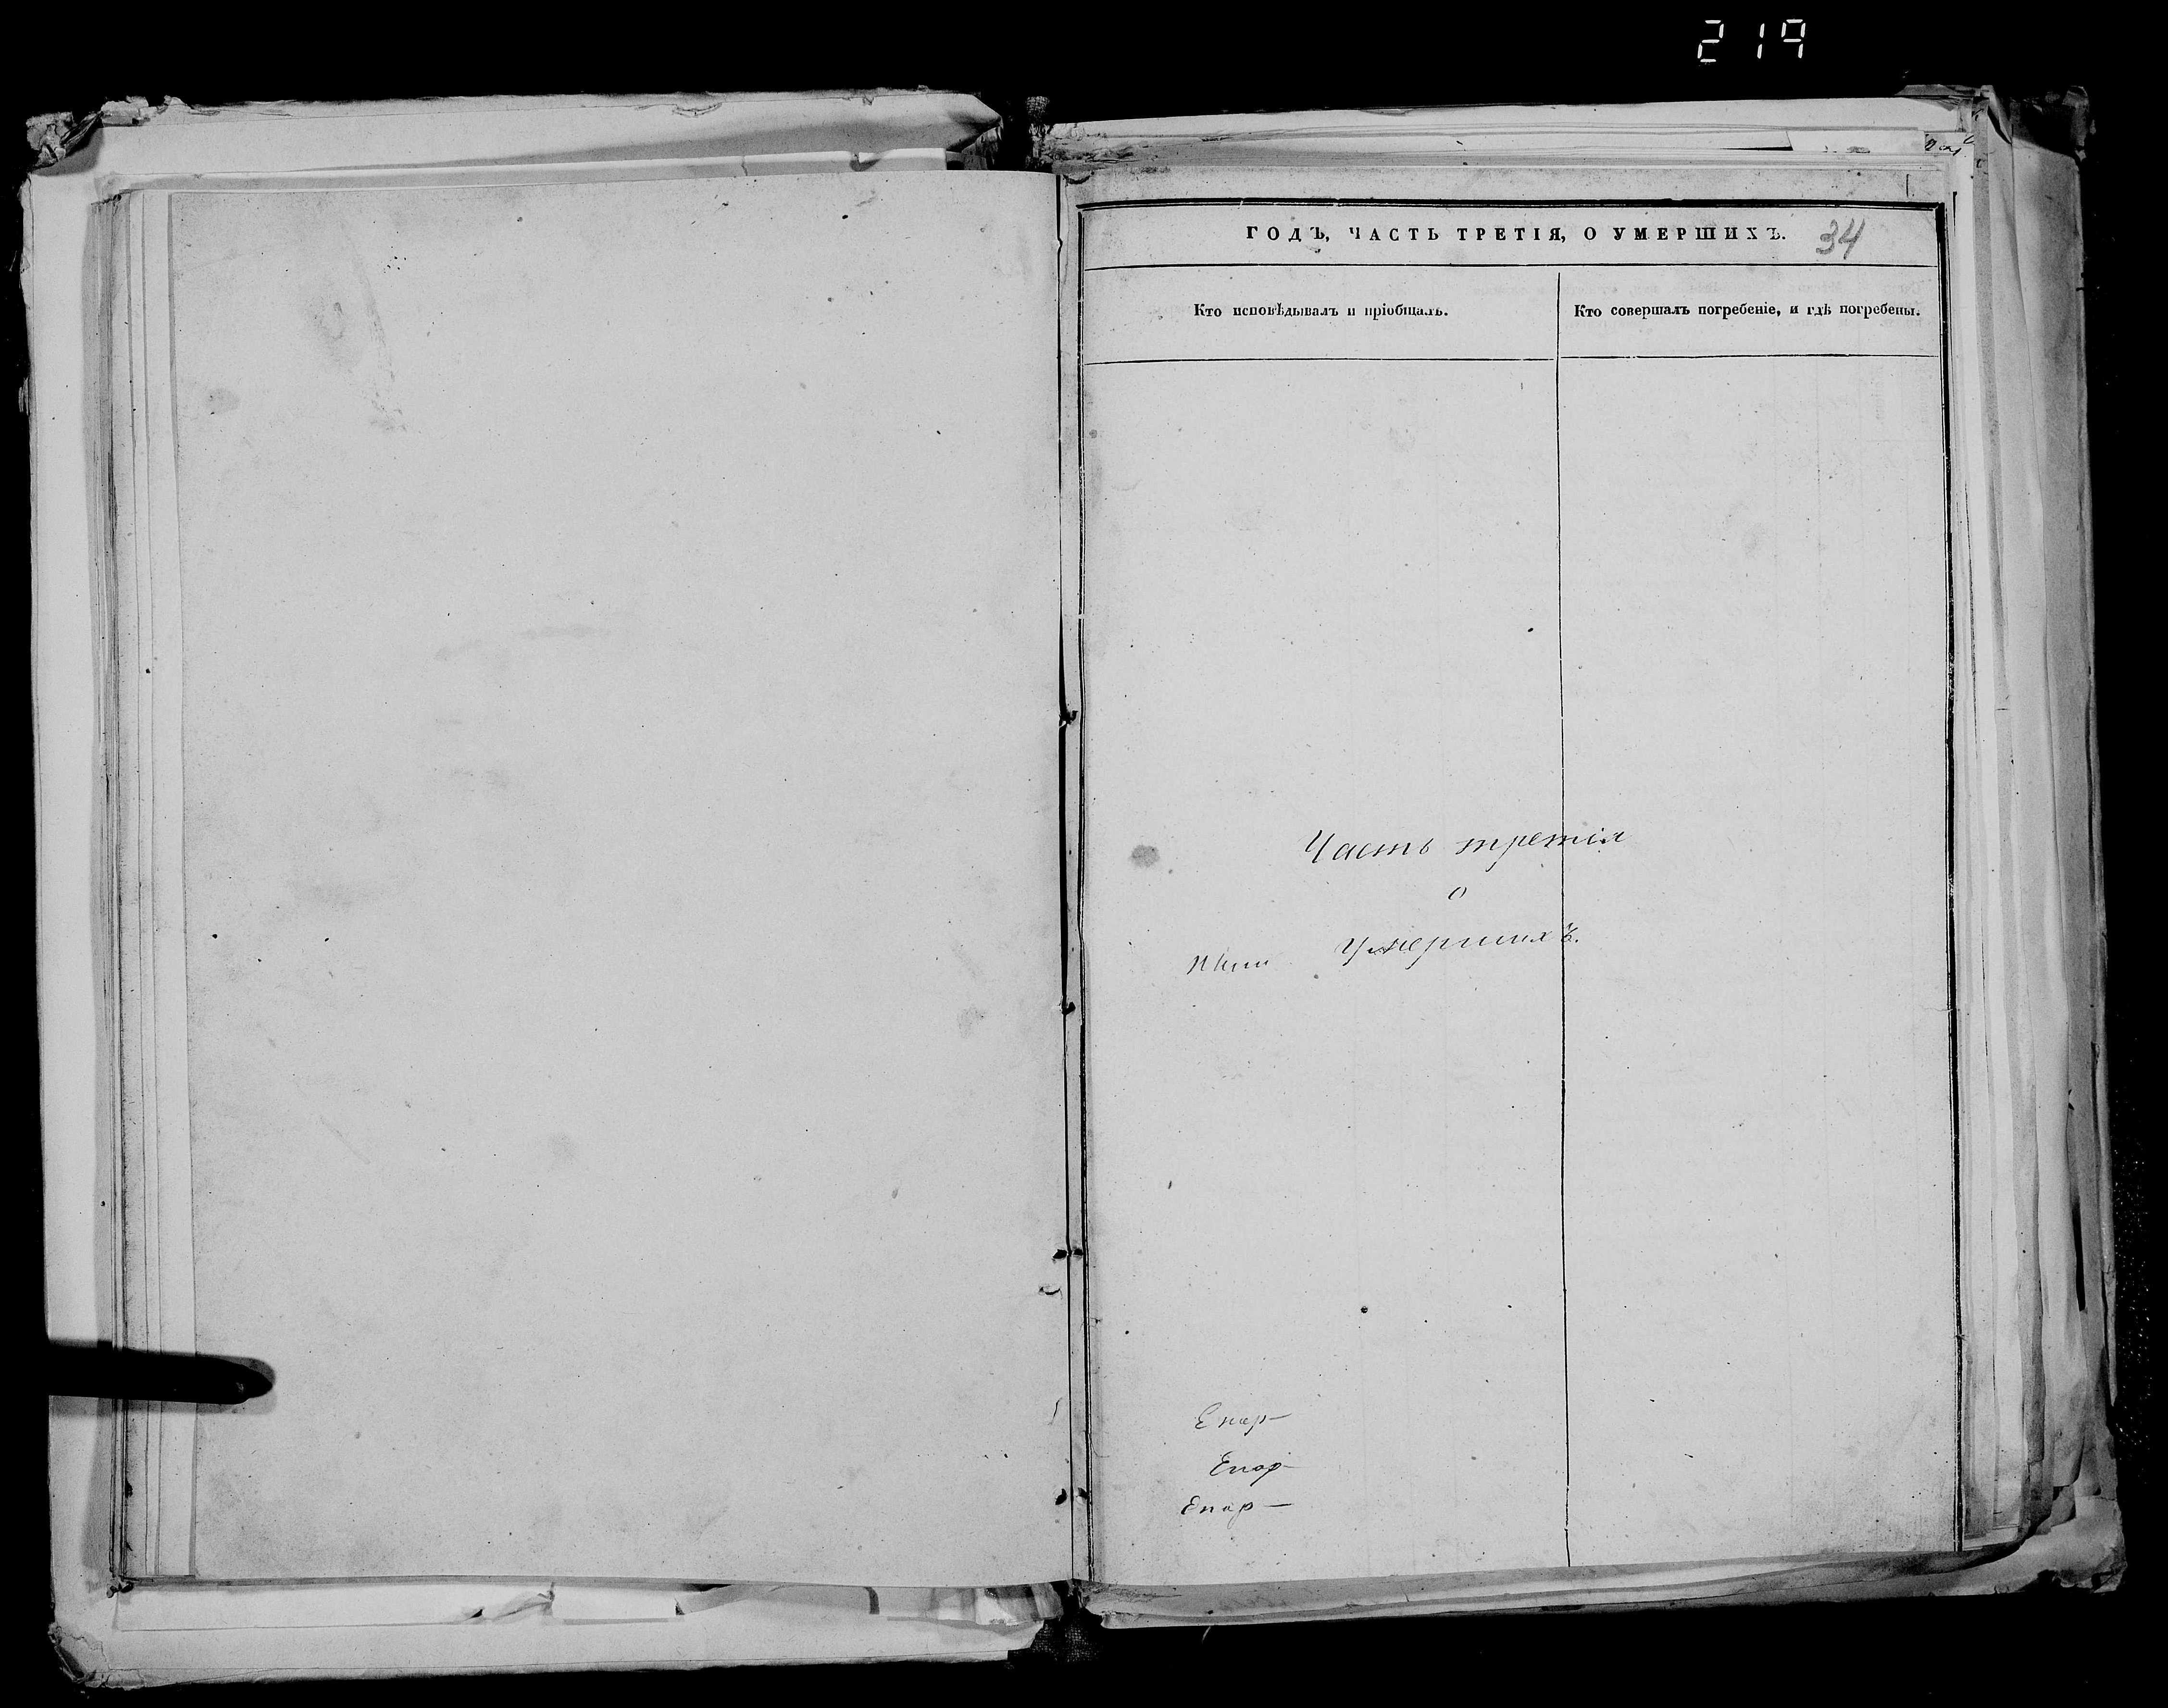 219
ГОДЪ, ЧАСТЬ ТРЕТІЯ, О УМЕРШИХЪ. 34
Кто исповѣдывалъ и пріобщалъ.
Кто совершалъ погребеніе, и гдѣ погребены.
Часть третія
о
Умершихъ.
Епар-
Епар-
Епар-